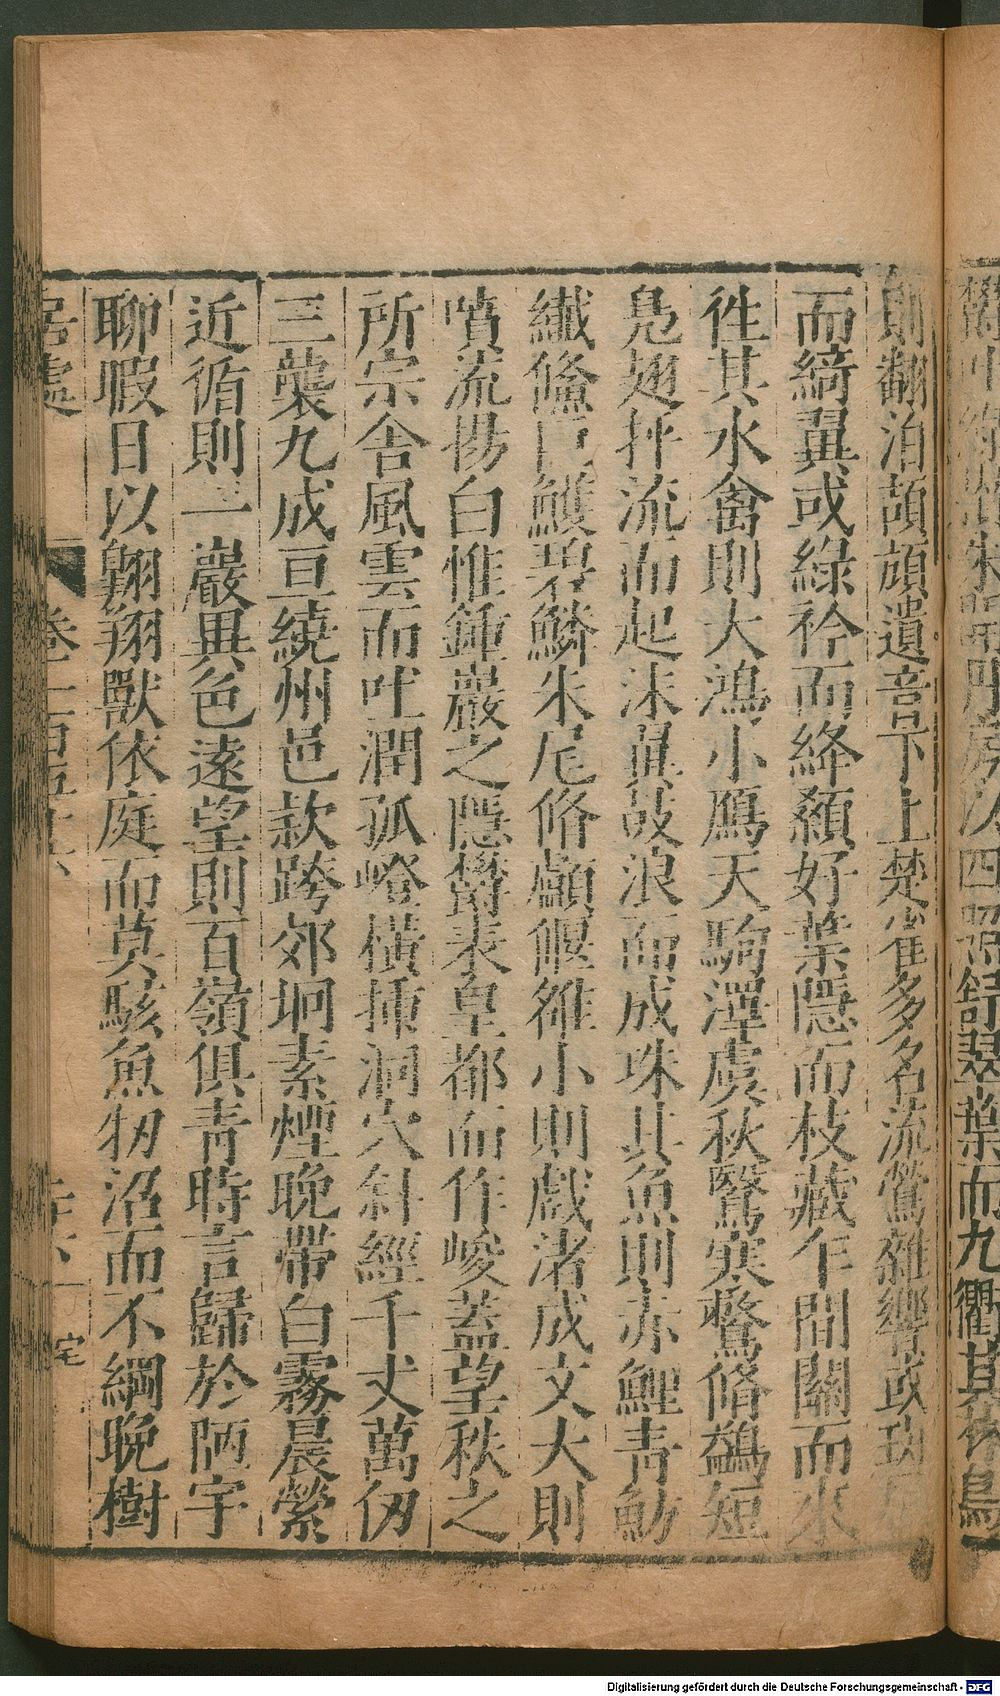 四照舒翠葉而九衢其林鳥
則翻泊頡頏遺音下上楚雀多名流鶯雜響或班尾
而綺翼或綠衿而絳顙好葉隱而枝藏乍間關而來
徃其水禽則大鴻小鴈天駒澤虞秋鷖寒鶩脩鷁短
鳬翅抨流而起沫翼鼓浪而成珠其魚則赤鯉青魴
纖鯈巨鱯碧鱗朱尾脩顱偃雒小則戲渚成文大則
噴流揚白惟鍾巖之隱欝表皇都而作峻蓋望秩之
所宗含風雲而吐潤孤嶝橫揷洞穴斜經千丈萬仭
三襲九成亘繞州邑款跨郊坰素煙晚帶白霧晨縈
近循則一巖異色遠望則百嶺俱青時言歸於陋宇
聊暇日以翱翔獸依庭而莫駭魚牣沼而不綱晚樹
居處 卷一百五十八 宅
Digitalisierung gefördert durch die Deutsche Forschungsgemeinschaft - DFG